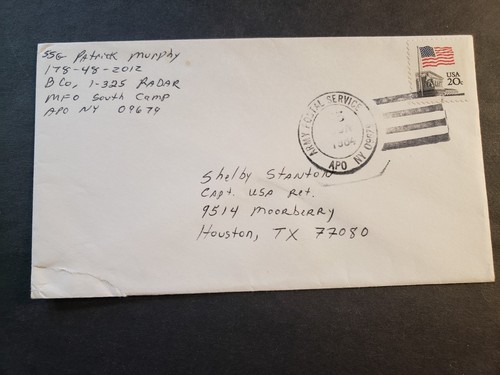 SSG Patrick Murphy
178-48-2012
B Co, 1-325 RADAR
MFO South Camp
APO NY 09679
USA
20c
ARMY POSTAL SERVICE
1984
APO NY
Shelby Stanton
Capt. USA Ret.
9514 Moorberry
Houston, TX 77080